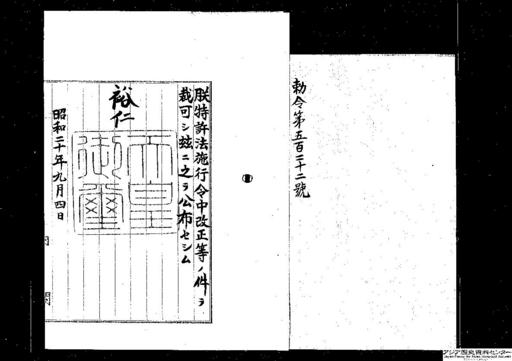 勅令第五百二十二號
朕特許法施行令中改正等ノ件ヲ
裁可シ玆ニ之ヲ公布セシム
裕仁
天皇
御璽
昭和二十年九月四日
アジア歴史資料センター